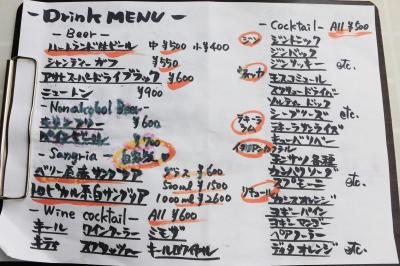 - Drink MENU -
- Beer -
ハートランド生ビール 中 ¥500 小 ¥400
シャンディーガフ ¥550
アサヒスーパードライブラック ¥600
ニュートン ¥900
- Nonalcohol Beer -
¥600
¥700
- Sangria - 自家製
ベリー系赤サングリア グラス ¥600
トロピカル系白サングリア 500ml ¥1500
1000ml ¥2600
- Wine cocktail - All ¥600
キール ワインクーラー ミモザ
キティ スプリッツァー キールロワイヤル
- Cocktail - All ¥500
ジン ジントニック
ジンバック
ジンリッキー etc.
ウォッカ モスコミュール
スクリュードライバー
ソルティドッグ
シーブリーズ etc.
テキーラ テキーラサンライズ
ラム キューバリバー
カンパリソーダ
スプモーニ etc.
リキュール カシスオレンジ
ヨギーパイン
ヨギーマンゴー
ピーチオレンジ etc.